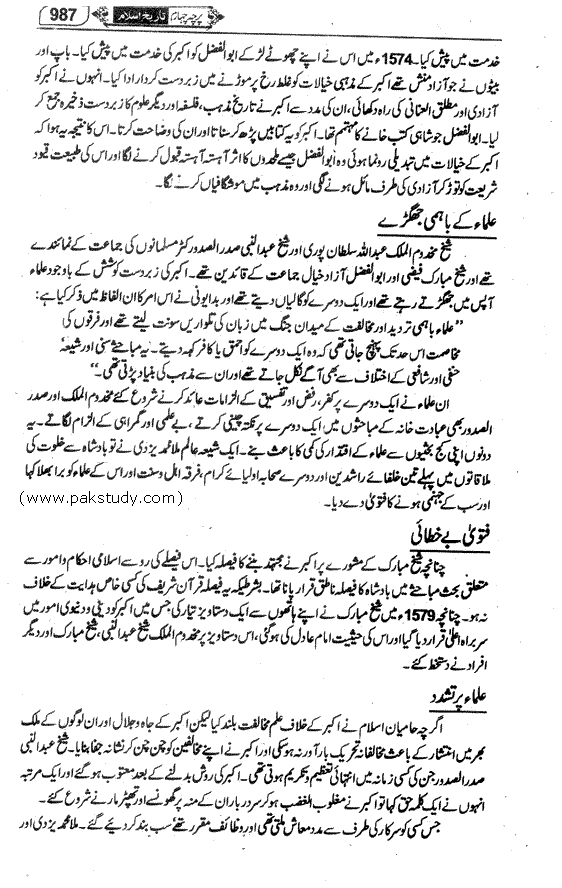 987 پرچہ چہارم تاریخ اسلام
خدمت میں پیش کیا۔ 1574ء میں اس نے اپنے چھوٹے لڑکے ابوالفضل کو اکبر کی خدمت میں پیش کیا۔ باپ اور
بیٹوں نے جو آزاد منش تھے اکبر کے مذہبی خیالات کو غلط رخ پر موڑنے میں زبردست کردار ادا کیا۔ انہوں نے اکبر کو
آزادی اور مطلق العنانی کی راہ دکھائی، ان کی مدد سے اکبر نے تاریخ مذہب، فلسفہ اور دیگر علوم کا زبردست ذخیرہ جمع کر
لیا۔ ابوالفضل جو شاہی کتب خانے کا مہتمم تھا۔ اکبر کو یہ کتابیں پڑھ کر سناتا اور ان کی وضاحت کرتا۔ اس کا نتیجہ یہ ہوا کہ
اکبر کے خیالات میں تبدیلی رونما ہوئی وہ ابوالفضل جیسے ملحدوں کا اثر آہستہ آہستہ قبول کرنے لگا اور اس کی طبیعت قیود
شریعت کو توڑ کر آزادی کی طرف مائل ہونے لگی اور وہ مذہب میں موشگافیاں کرنے لگا۔
علماء کے باہمی جھگڑے
شیخ مخدوم الملک عبداللہ سلطان پوری اور شیخ عبدالنبی صدر الصدور کٹر مسلمانوں کی جماعت کے نمائندے
تھے اور شیخ مبارک فیضی اور ابوالفضل آزاد خیال جماعت کے قائدین تھے۔ اکبر کی زبردست کوشش کے باوجود علماء
آپس میں جھگڑتے رہتے تھے اور ایک دوسرے کو گالیاں دیتے تھے اور بدایونی نے اس امر کا ان الفاظ میں ذکر کیا ہے:
”علماء باہمی تردید اور مخالفت کے میدان جنگ میں زبان کی تلواریں سونت لیتے تھے اور فرقوں کی
مخاصمت اس حد تک پہنچ جاتی تھی کہ وہ ایک دوسرے کو احمق یا کافر کہہ دیتے۔ یہ مباحثے سنی اور شیعہ
حنفی اور شافعی کے اختلاف سے بھی آگے نکل جاتے تھے اور ان سے مذہب کی بنیاد پڑتی تھی۔“
ان علماء نے ایک دوسرے پر کفر، رفض اور تفسیق کے الزامات عائد کرنے شروع کئے مخدوم الملک اور صدر
الصدور بھی عبادت خانہ کے مباحثوں میں ایک دوسرے پر نکتہ چینی کرتے، بے علمی اور گمراہی کے الزام لگاتے۔ یہ
دونوں اپنی کج بحثیوں سے علماء کے اقتدار کی کمی کا باعث بنے۔ ایک شیعہ عالم ملا محمد یزدی نے تو بادشاہ سے خلوت کی
ملاقاتوں میں پہلے تین خلفائے راشدین اور دوسرے صحابہ اولیائے کرام، فرقہ اہل وسنت اور اس کے علماء کو برا بھلا کہا
اور سب کے جہنمی ہونے کا فتویٰ دے دیا۔
(www.pakstudy.com)
فتویٰ بے خطائی
چنانچہ شیخ مبارک کے مشورے پر اکبر نے مجتہد بننے کا فیصلہ کیا۔ اس فیصلے کی رو سے اسلامی احکام و امور سے
متعلق بحث مباحثے میں بادشاہ کا فیصلہ ناطق قرار پانا تھا۔ بشرطیکہ یہ فیصلہ قرآن شریف کی کسی خاص ہدایت کے خلاف
نہ ہو۔ چنانچہ 1579ء میں شیخ مبارک نے اپنے ہاتھوں سے ایک دستاویز تیار کی جس میں اکبر کو دینی و دنیوی امور میں
سربراہ اعلیٰ قرار دیا گیا اور اس کی حیثیت امام عادل کی ہو گئی، اس دستاویز پر مخدوم الملک شیخ عبدالنبی، شیخ مبارک اور دیگر
افراد نے دستخط کئے۔
علماء پر تشدد
اگرچہ حامیان اسلام نے اکبر کے خلاف علم مخالفت بلند کیا لیکن اکبر کے جاہ و جلال اور ان لوگوں کے ملک
بھر میں انتشار کے باعث مخالفانہ تحریک بارآور نہ ہو سکی اور اکبر نے اپنے مخالفین کو چن چن کر نشانہ جفا بنایا۔ شیخ عبدالنبی
صدر الصدور جن کی کسی زمانہ میں انتہائی تعظیم و تکریم ہوتی تھی۔ اکبر کی روش بدلنے کے بعد معتوب ہو گئے اور ایک مرتبہ
انہوں نے ایک کلمہ حق کہا تو اکبر نے مغلوب الغضب ہو کر سر دربار ان کے منہ پر گھونسے اور تھپڑ مارنے شروع کئے۔
جس کسی کو سرکار کی طرف سے مدد معاش ملتی تھی اور وظائف مقرر تھے سب بند کر دیئے گئے۔ ملا محمد یزدی اور